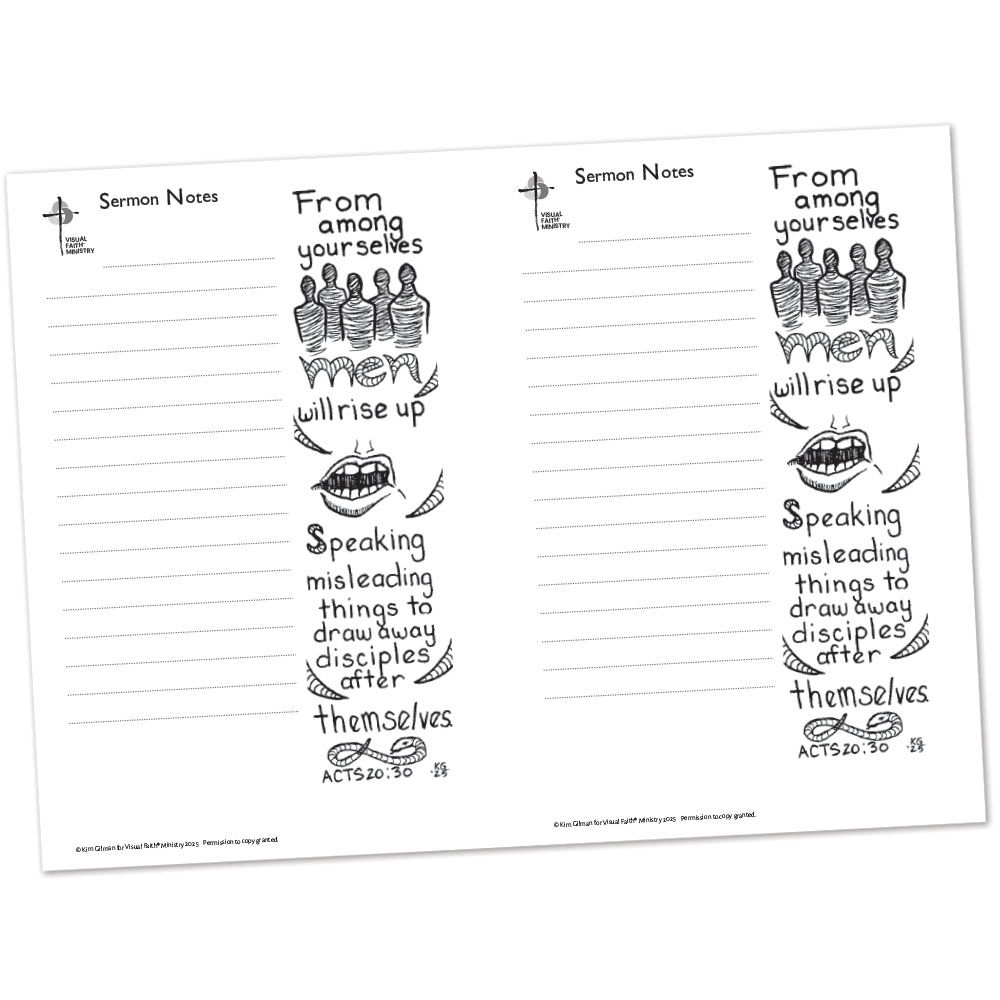 Sermon Notes
VISUAL
FAITH®
MINISTRY
From
among
yourselves
men
will rise up
Speaking
misleading
things to
draw away
disciples
after
themselves.
ACTS 20:30
KG
'25
© Kim Gilman for Visual Faith® Ministry 2025 Permission to copy granted.
Sermon Notes
VISUAL
FAITH®
MINISTRY
From
among
yourselves
men
will rise up
Speaking
misleading
things to
draw away
disciples
after
themselves.
ACTS 20:30
KG
'25
© Kim Gilman for Visual Faith® Ministry 2025 Permission to copy granted.